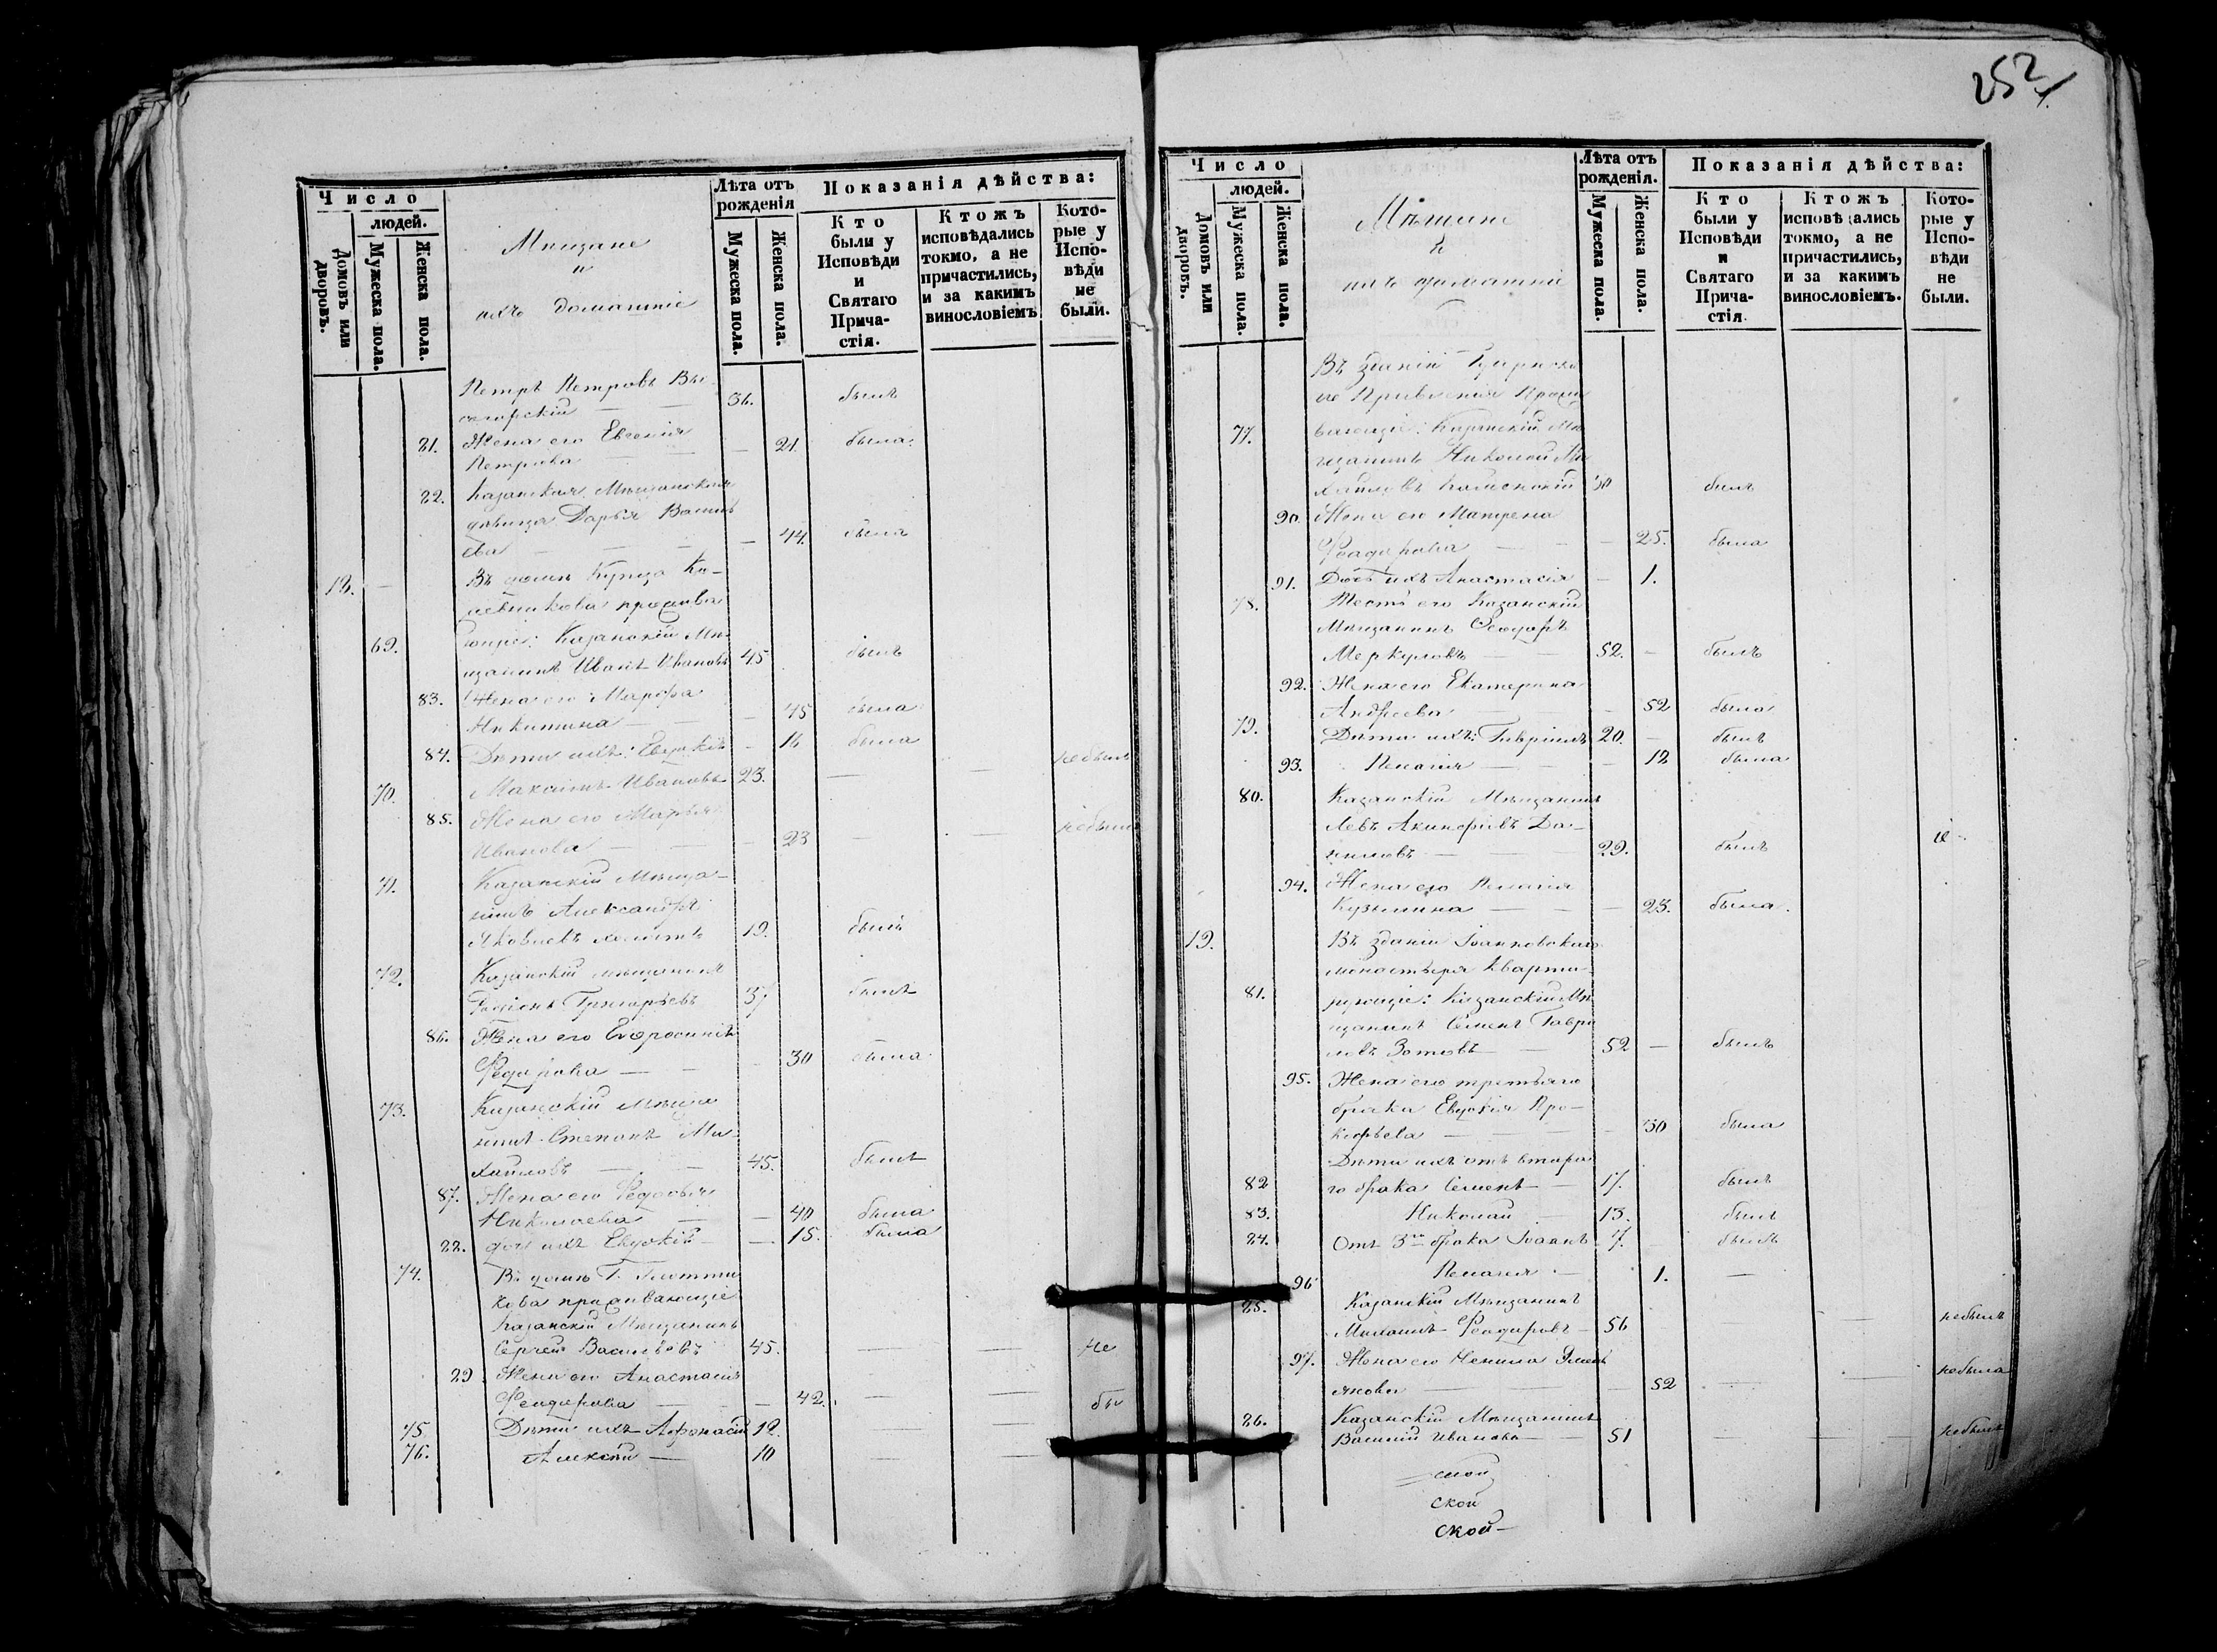 252
Число
людей.
Домовъ или дворовъ.
Мужеска пола.
Женска пола.
Мѣщане
и
ихъ домашніе
Лѣта отъ рожденія
Мужеска пола.
Женска пола.
Показанія дѣйства:
Кто были у Исповѣди и Святаго Прича-стія.
Ктожъ исповѣдались токмо, а не причастились, и за какимъ винословіемъ
Кото-рые у Испо-вѣди не были.
Петръ Петровъ
36. былъ
81. Жена его Евгенія
Петрова — — 21. была
82. Казанская Мѣщанская
дѣвица Дарья Василь
ева — — — 44. была
18. — Въ домѣ Купца
прожива
69. ющіе: Казанскій Мѣ-
щанинъ Иванъ Ивановъ 45 былъ
83. Жена его Марфа
Никитина — — 45 была
84. Дѣти ихъ: Евдокія — 16 была
70. Максимъ Ивановъ 23. — — небылъ
85. Жена его Марья
Иванова — — 23 — — небыла
71. Казанскій Мѣща-
нинъ Александръ
Яковлевъ 19. былъ
72. Казанскій мѣщанинъ
Родіонъ Григорьевъ 37 былъ
86. Жена его Ефросинія
Федорова — — 30 была
73. Казанскій мѣща
нинъ Степанъ Ми-
хайловъ — — 45. былъ
87. Жена его Федосья
Николаева — — 40 была
88. дочь ихъ Евдокія — 15. была
74. Въ домѣ Г.
кова проживающіе
Казанскій Мѣщанинъ
Сергей Васильевъ 45. — — не
89. Жена его Анастасія
Феодорова — — 42. — — бы
75. Дѣти ихъ Афонасій 12. —
76. Алексѣй — 10 — —
Число
людей.
Домовъ или дворовъ.
Мужеска пола.
Женска пола.
Мѣщане
и
ихъ домашніе
Лѣта отъ рожденія.
Мужеска пола.
Женска пола.
Показанія дѣйства:
Кто были у Исповѣди и Святаго Прича-стія
Ктожъ исповѣдались токмо, а не причастились, и за какимъ винословіемъ.
Кото-рые у Испо-вѣди не были.
Въ зданіи Губернска
го Правленія Прожи
77. вающіе: Казанскій Мѣ
щанинъ Николай Ми
хайловъ 30 былъ
90. Жена его Матрена
Феодорова — — 25. была
91. Дочь ихъ Анастасія — 1.
78. Тесть его Казанскій
Мѣщанинъ Феодоръ
Меркуловъ — — 52. — былъ
92. Жена его Екатерина
Андреева — 52 была
79. Дѣти ихъ: Гавріилъ 20. — былъ
93. Пелагія — — 12 была
80. Казанскій Мѣщанинъ
Левъ Акинфіевъ Да-
ниловъ — — 29. былъ
94. Жена его Пелагія
Кузьмина — — — 23. была.
19. Въ зданіи Іоанновскаго
монастыря Кварти-
81. рующіе: Казанскій Мѣ
щанинъ Семенъ Гаври
ловъ Зотовъ — 52 — былъ
95. Жена его третьяго
брака Евдокія Про-
кофьева — — — 30 была
Дѣти ихъ отъ втора
82 го брака Семенъ — 17. былъ
83. Николай — 13. былъ
84. Отъ 3го брака Іоаннъ 7. — былъ
96 Пелагія — 1. —
85. Казанскій Мѣщанинъ
Михаилъ Феодоровъ — 56 — небылъ
97. Жена его
52 — — небыла
86. Казанскій Мѣщанинъ
Василій Ивановъ — 51 — — небылъ
ской
ской —